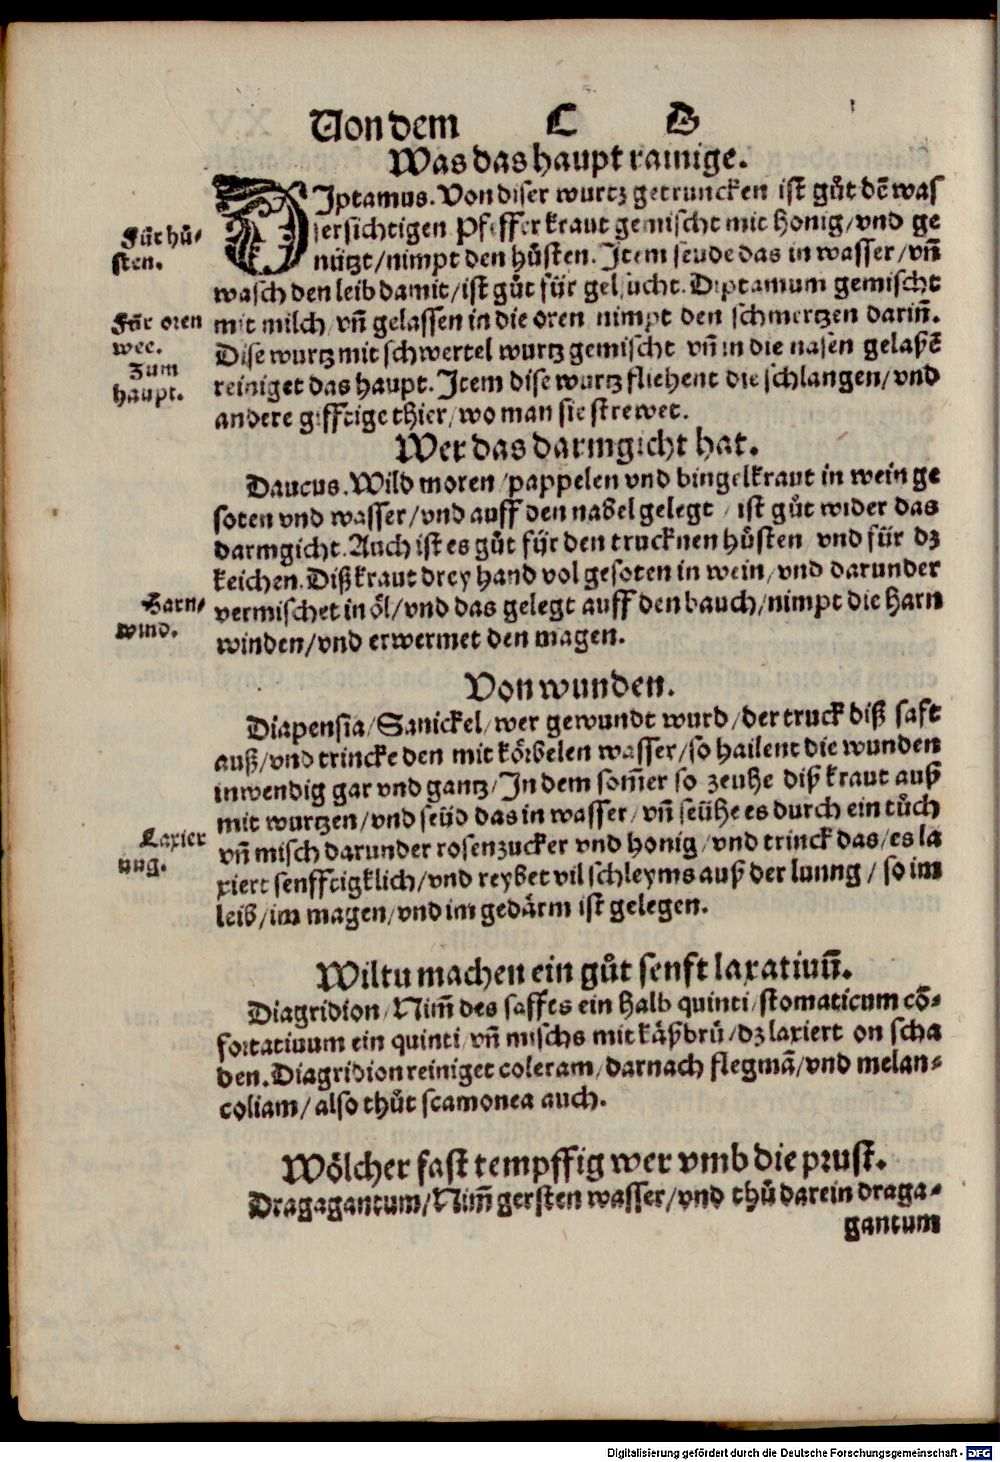 Von dem C D
Was das haupt rainige.
DIptamus. Von diser wurtz getruncken ist gůt dē was
sersichtigen Pfefferkraut gemischt mit honig/vnd ge
Für hů⸗
sten.
nützt/nimpt den hůsten. Item seude das in wasser/vñ
wasch den leib damit/ist gůt für gelsucht. Diptamum gemischt
Für oren
wee.
mit milch/vñ gelassen in die oren nimpt den schmertzen dariñ.
Dise wurtz mit schwertel wurtz gemischt vñ in die nasen gelaßē
Zum
haupt.
reiniget das haupt. Item dise wurtz fliehent die schlangen/vnd
andere gifftige thier/wo man sie strewet.
Wer das darmgicht hat.
Daucus. Wild moren/pappelen vnd bingelkraut in wein ge
soten vnd wasser/vnd auff den nabel gelegt/ist gůt wider das
darmgicht. Auch ist es gůt für den trucknen hůsten vnd für dz
keichen. Diß kraut drey hand vol gesoten in wein/vnd darunder
Harn⸗
wind.
vermischet in öl/vnd das gelegt auff den bauch/nimpt die harn
winden/vnd erwermet den magen.
Von wunden.
Diapensia/Sanickel/wer gewundt wurd/der truck diß saft
auß/vnd trincke den mit körbelen wasser/so hailent die wunden
inwendig gar vnd gantz/In dem som̃er so zeuhe diß kraut auß
mit wurtzen/vnd seüd das in wasser/vñ seühe es durch ein tůch
Laxier
ung.
vñ misch darunder rosenzucker vnd honig/vnd trinck das/es la
xiert senfftigklich/vnd reybet vil schleyms auß der lunng/so im
leib/im magen/vnd im gedärm ist gelegen.
Wiltu machen ein gůt senft laxatiuū.
Diagridion/Nim̃ des saffts ein halb quinti/stomaticum cō⸗
fortatiuum ein quinti/vñ mischs mit käßbrů/dz laxiert on scha
den. Diagridion reiniget coleram/darnach flegmā/vnd melan⸗
coliam/also thůt scamonea auch.
Wölcher fast tempffig wer vmb die prust.
Dragagantum/Nim̃ gersten wasser/vnd thů darein draga⸗
gantum
Digitalisierung gefördert durch die Deutsche Forschungsgemeinschaft - DFG